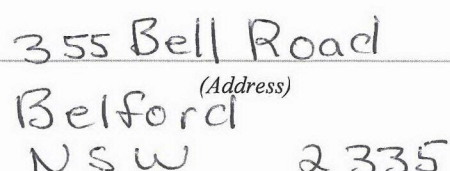 355 Bell Road
(Address)
Belford
NSW 2335